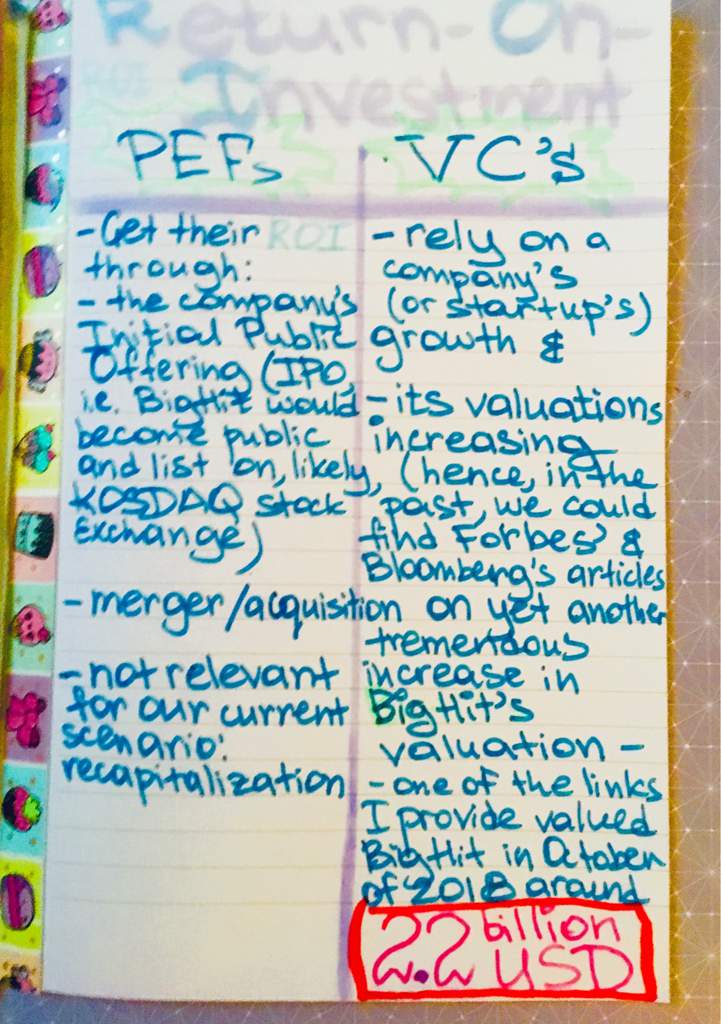 Return-On-
ROI
Investment
PEFs
- Get their ROI
through:
- the company's
Initial Public
Offering (IPO,
i.e. BigHit would
become public
and list on, likely,
KOSDAQ stock
Exchange)
- merger/acquisition
- not relevant
for our current
scenario:
recapitalization
VC's
- rely on a
company's
(or startup's)
growth &
- its valuations
increasing
(hence, in the
past, we could
find Forbes' &
Bloomberg's articles
on yet another
tremendous
increase in
BigHit's
valuation -
- one of the links
I provide valued
BigHit in October
of 2018 around
2.2 billion
USD